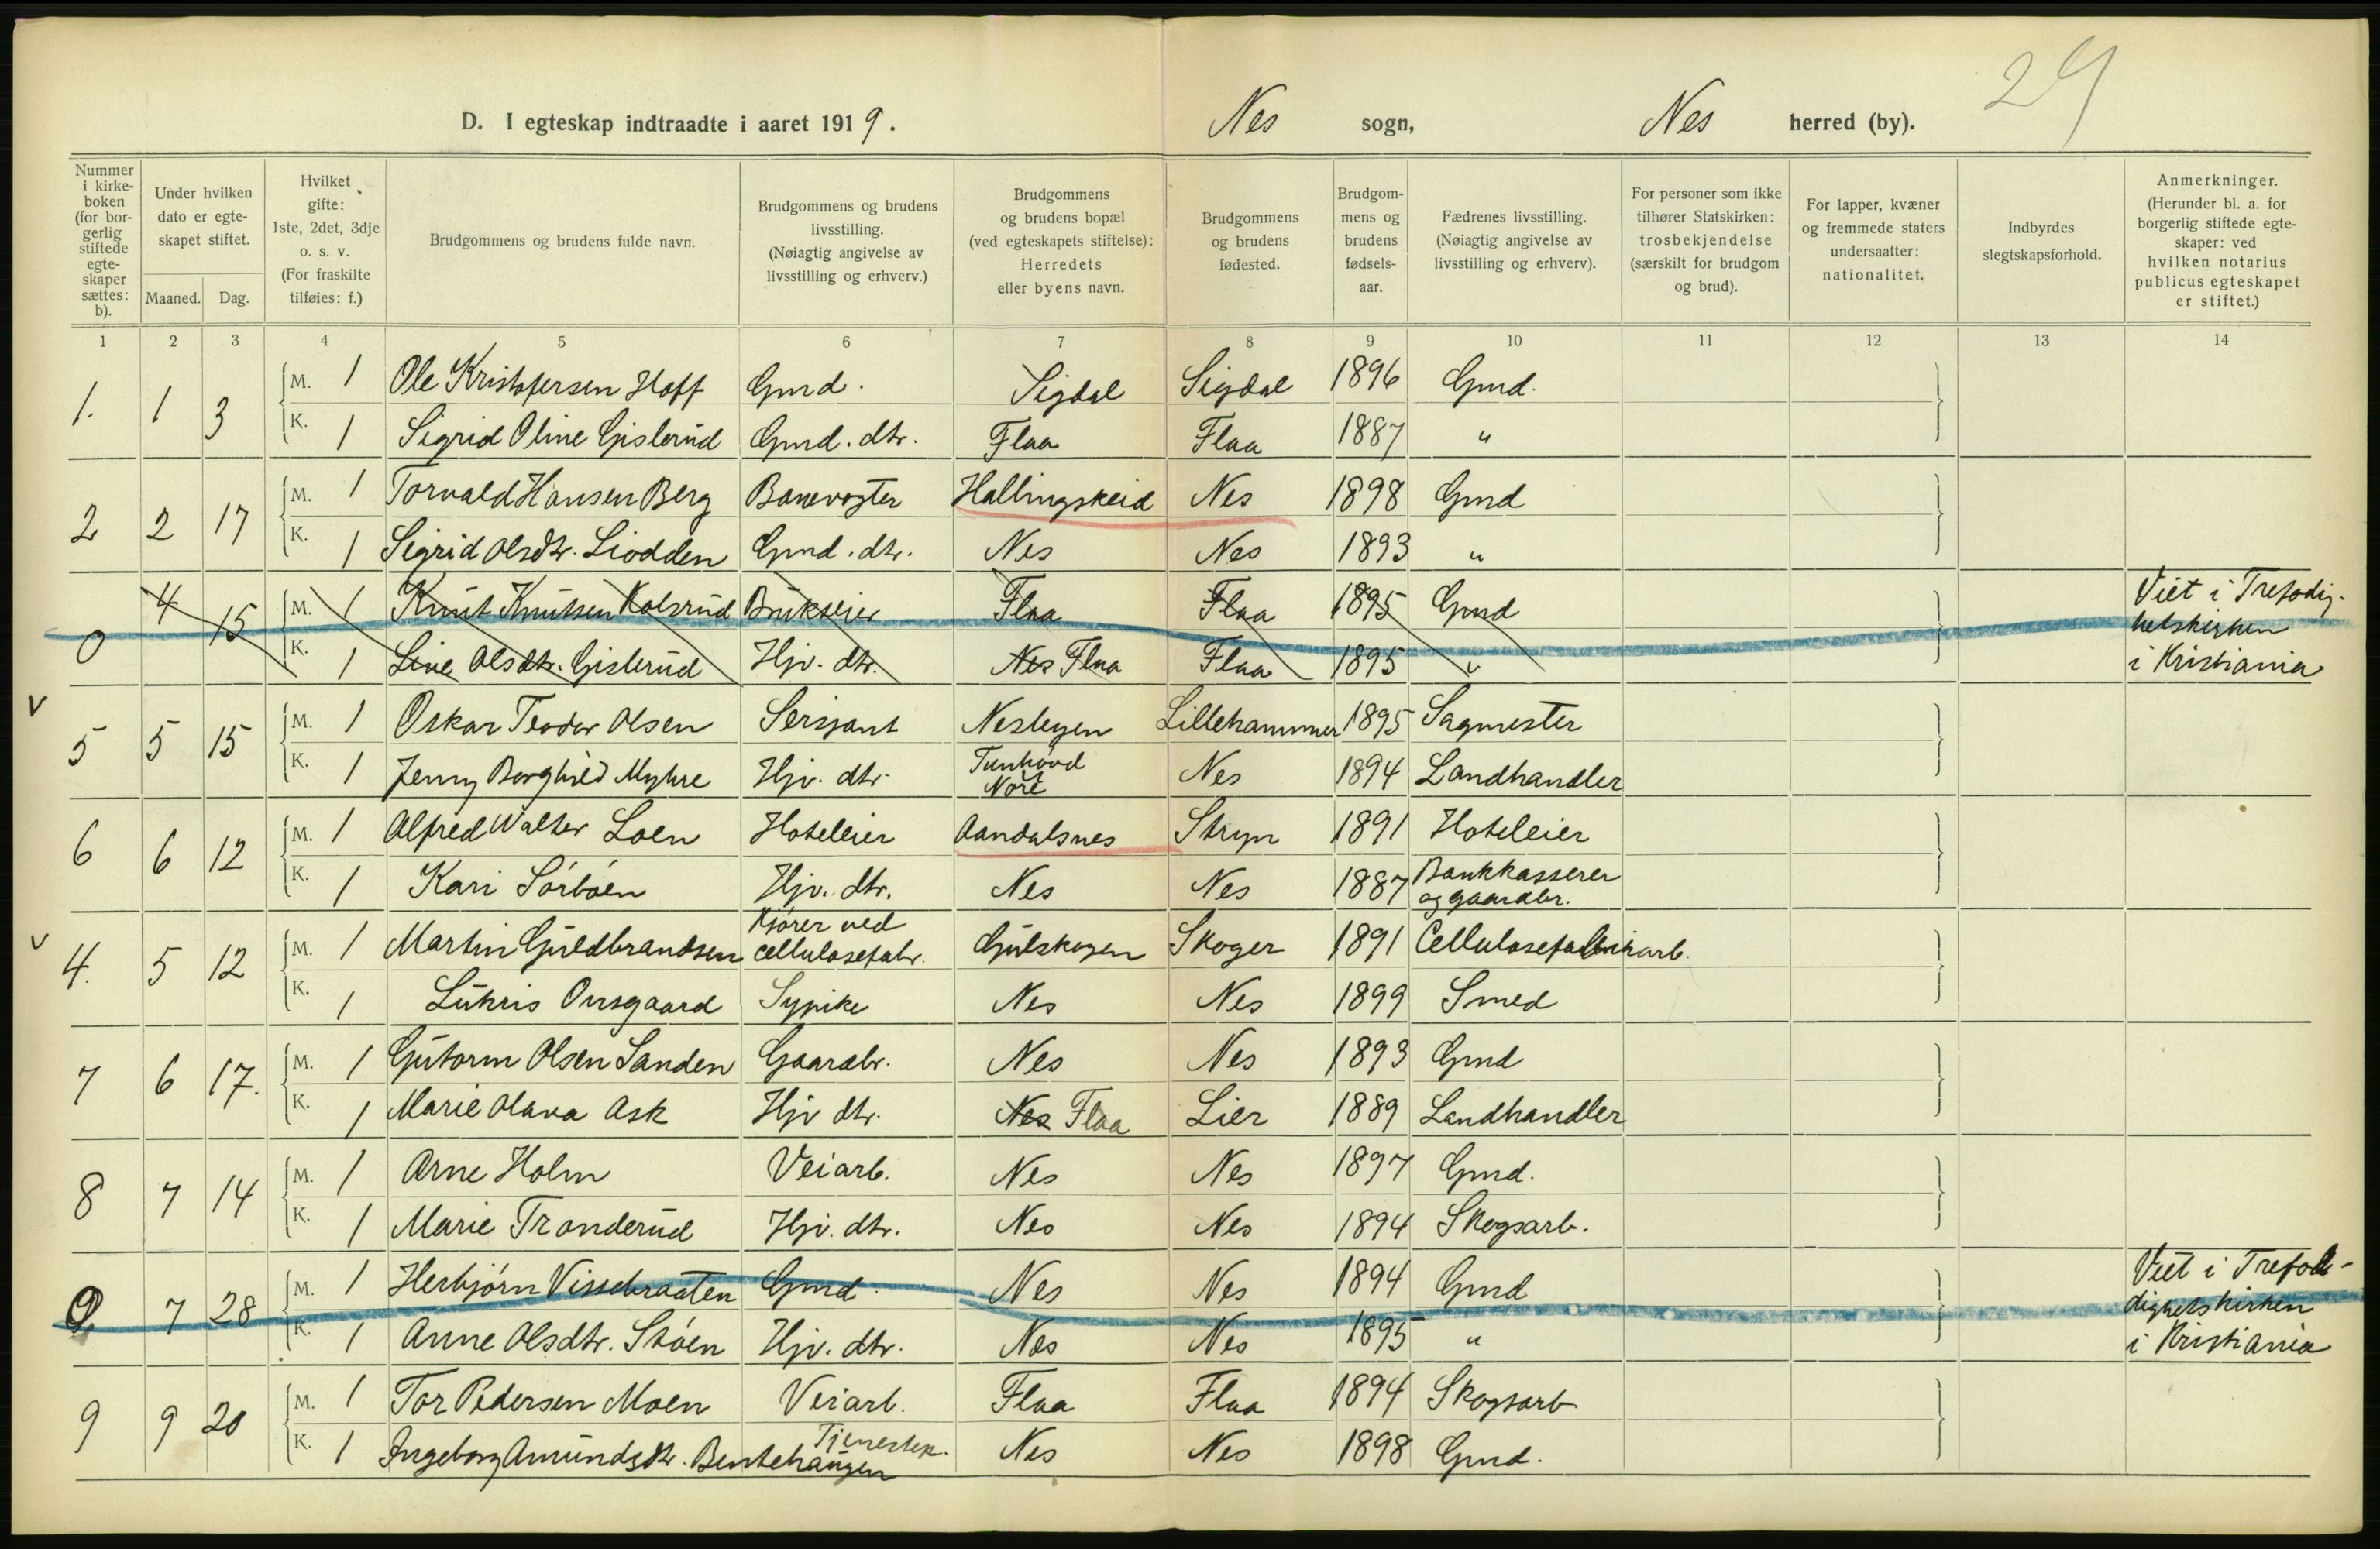 29
D. I egteskap indtraadte i aaret 1919. Nes sogn, Nes herred (by).
Nummer i kirke-boken (for bor-gerlig stiftede egte-skaper sættes: b).
Under hvilken dato er egte-skapet stiftet.
Maaned. Dag.
Hvilket gifte: 1ste, 2det, 3dje o. s. v. (For fraskilte tilføies: f.)
Brudgommens og brudens fulde navn.
Brudgommens og brudens livsstilling. (Nøiagtig angivelse av livsstilling og erhverv.)
Brudgommens og brudens bopæl (ved egteskapets stiftelse): Herredets eller byens navn.
Brudgommens og brudens fødested.
Brudgom-mens og brudens fødsels-aar.
Fædrenes livsstilling. (Nøiagtig angivelse av livsstilling og erhverv).
For personer som ikke tilhører Statskirken: trosbekjendelse (særskilt for brudgom og brud).
For lapper, kvæner og fremmede staters undersaatter: nationalitet.
Indbyrdes slegtskapsforhold.
Anmerkninger. (Herunder bl. a. for borgerlig stiftede egte-skaper: ved hvilken notarius publicus egteskapet er stiftet.)
1 2 3 4 5 6 7 8 9 10 11 12 13 14
1. 1 3 M. 1 Ole Kristofersen Hoff Gmd. Sigdal Sigdal 1896 Gmd.
K. 1 Sigrid Oline Gislerud Gmd. dtr. Flaa Flaa 1887 "
2 2 17 M. 1 Torvald Hansen Berg Banevogter Hallingskeid Nes 1898 Gmd
K. 1 Sigrid Olsdtr. Liodden Gmd. dtr. Nes Nes 1893 "
0 4 15 M. 1 Knut Knutsen Kolsrud Brukseier Flaa Flaa 1895 Gmd Viet i Trefodig-
hetskirken
K. 1 Line Olsdtr. Gislerud Hjv. dtr. Nes Flaa Flaa 1895 " i Kristiania
v
5 5 15 M. 1 Oskar Teodor Olsen Sersjant Nesbyen Lillehammer 1895 Sagmester
K. 1 Jenny Borghild Myhre Hjv. dtr. Tunhovd Nore Nes 1894 Landhandler
6 6 12 M. 1 Alfred Walter Loen Hoteleier Aandalsnes Stryn 1891 Hoteleier
K. 1 Kari Sörböen Hjv. dtr. Nes Nes 1887 Bankkasserer og gaardbr.
v
4. 5 12 M. 1 Martin Guldbrandsen Kjörer ved cellulosefabr. Gulskogen Skoger 1891 Cellulosefabrikarb.
K. 1 Lukris Onsgaard Sypike Nes Nes 1899 Smed
7 6 17. M. 1 Gutorm Olsen Sanden Gaardbr. Nes Nes 1893 Gmd
K. 1 Marie Olava Ask Hjv dtr. Nes Flaa Lier 1889 Landhandler
8 7 14 M. 1 Arne Holm Veiarb. Nes Nes 1897 Gmd.
K. 1 Marie Tronderud Hjv. dtr. Nes Nes 1894 Skogsarb.
0 7 28 M. 1 Herbjörn Vissebraaten Gmd. Nes Nes 1894 Gmd Viet i Trefol-
dighetskirken
K. 1 Anne Olsdtr. Stöen Hjv. dtr. Nes Nes 1895 " i Kristiania
9 9 20 M. 1 Tor Pedersen Moen Veiarb. Flaa Flaa 1894 Skogsarb
K. 1 Ingeborg Amundsdtr. Bentehaugen Tjenestep. Nes Nes 1898 Gmd.